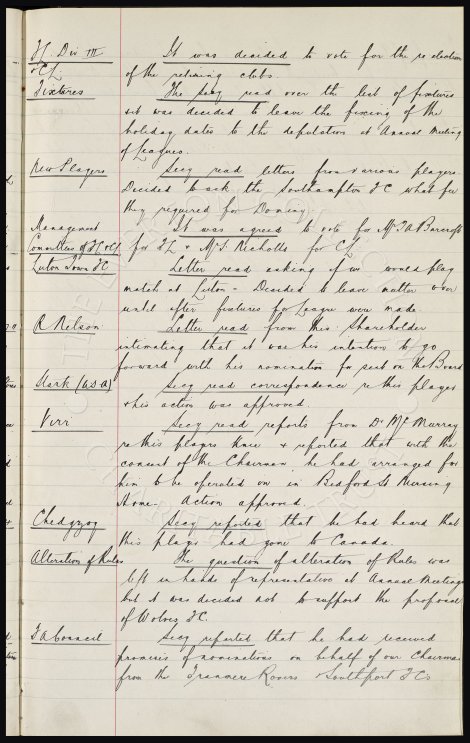 FL Div III It was decided to vote for the re election
& CL of the retiring clubs.
Fixtures The Secy read over the list of fixtures
& it was decided to leave the fixing of the
holiday dates to the deputation at Annual Meeting
of Leagues.
New Players Secy read letters from various players.
Decided to ask the Southampton FC what fee
they required for Dominy.
Management It was agreed to vote for Mr T A Barcroft
Committees of FL & CL for FL & Mr S. Nicholls for CL
Luton Town FC Letter read asking if we would play
match at Luton - Decided to leave matter over
until after fixtures for League were made.
R Nelson Letter read from this Shareholder
intimating that it was his intention to go
forward with his nomination for seat on the Board
Mark (U.S.A) Secy read correspondence re this player
& his action was approved.
Virr Secy read reports from Dr McMurray
re this players knee & reported that with the
consent of the Chairman he had arranged for
him to be operated on in Bedford St Nursing
Home. Action approved.
Chedgzoy Secy reported that he had heard that
this player had gone to Canada.
Alteration of Rules The question of alteration of Rules was
left in hands of representatives at Annual Meetings
but it was decided not to support the proposal
of Wolves FC.
FA Council Secy reported that he had received
promises of nominations on behalf of our Chairman
from the Tranmere Rovers & Southport FCs